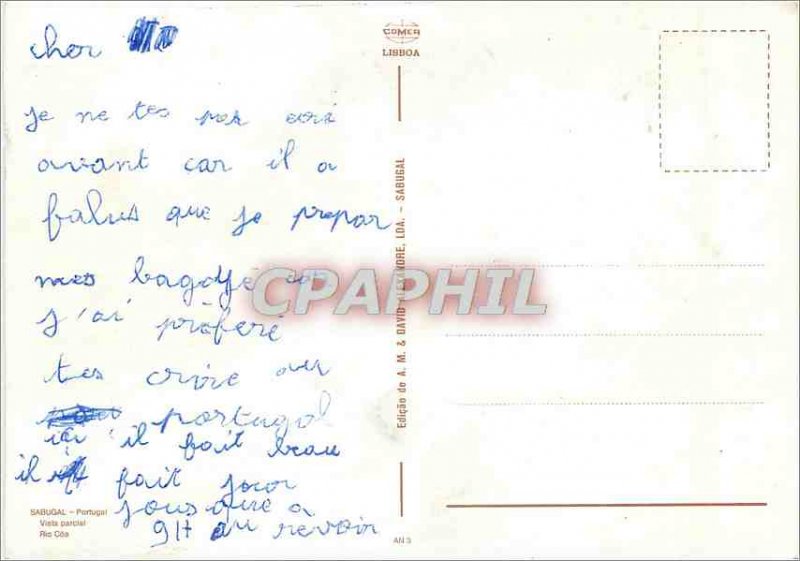 cher
je ne tes pas
avant car il a
falus que je prepar
mes bagajé
j'ai préferé
tes crire au
portugal
ici il fait beau
il fait jour
jousque a
9 H au revoir
SABUGAL – Portugal
Vista parcial
Rio Côa
COMER
LISBOA
Edição de A. M. & DAVID ALEXANDRE, LDA. – SABUGAL
AN 3
CPAPHIL